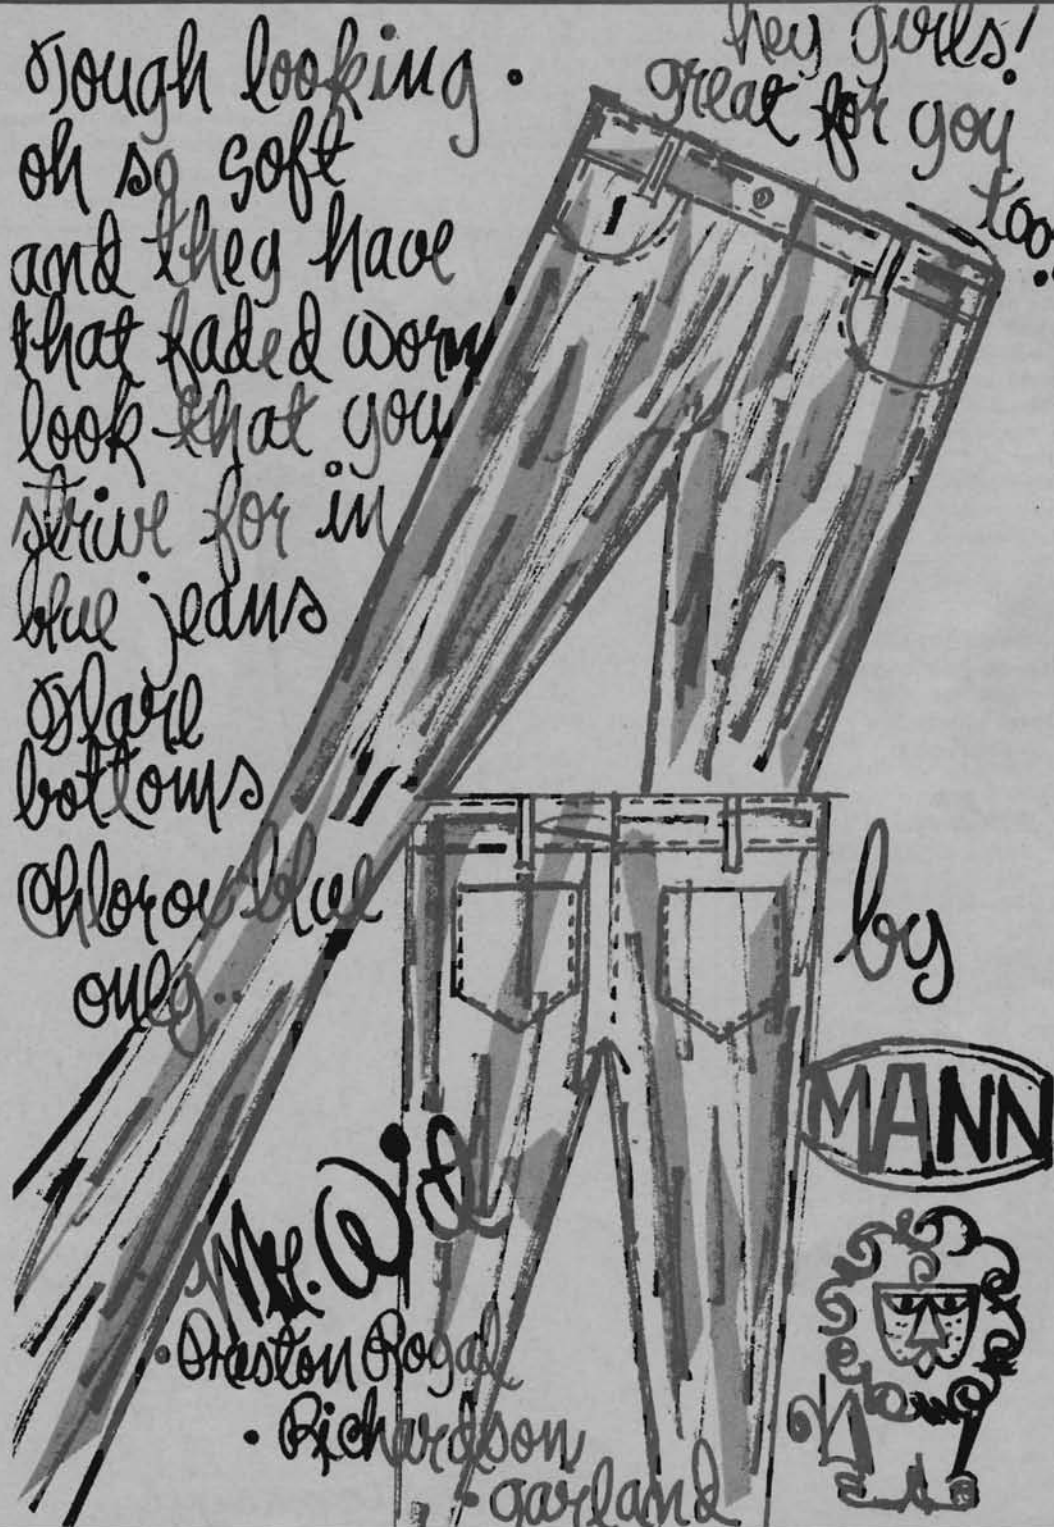 Tough looking .
oh so soft
and they have
that faded worn
look that you
strive for in
blue jeans
Flare
bottoms
Chlorox blue
only..
hey girls!
great for you
too..
by
MANN
Mr.
. Preston Royal
. Richardson
. garland